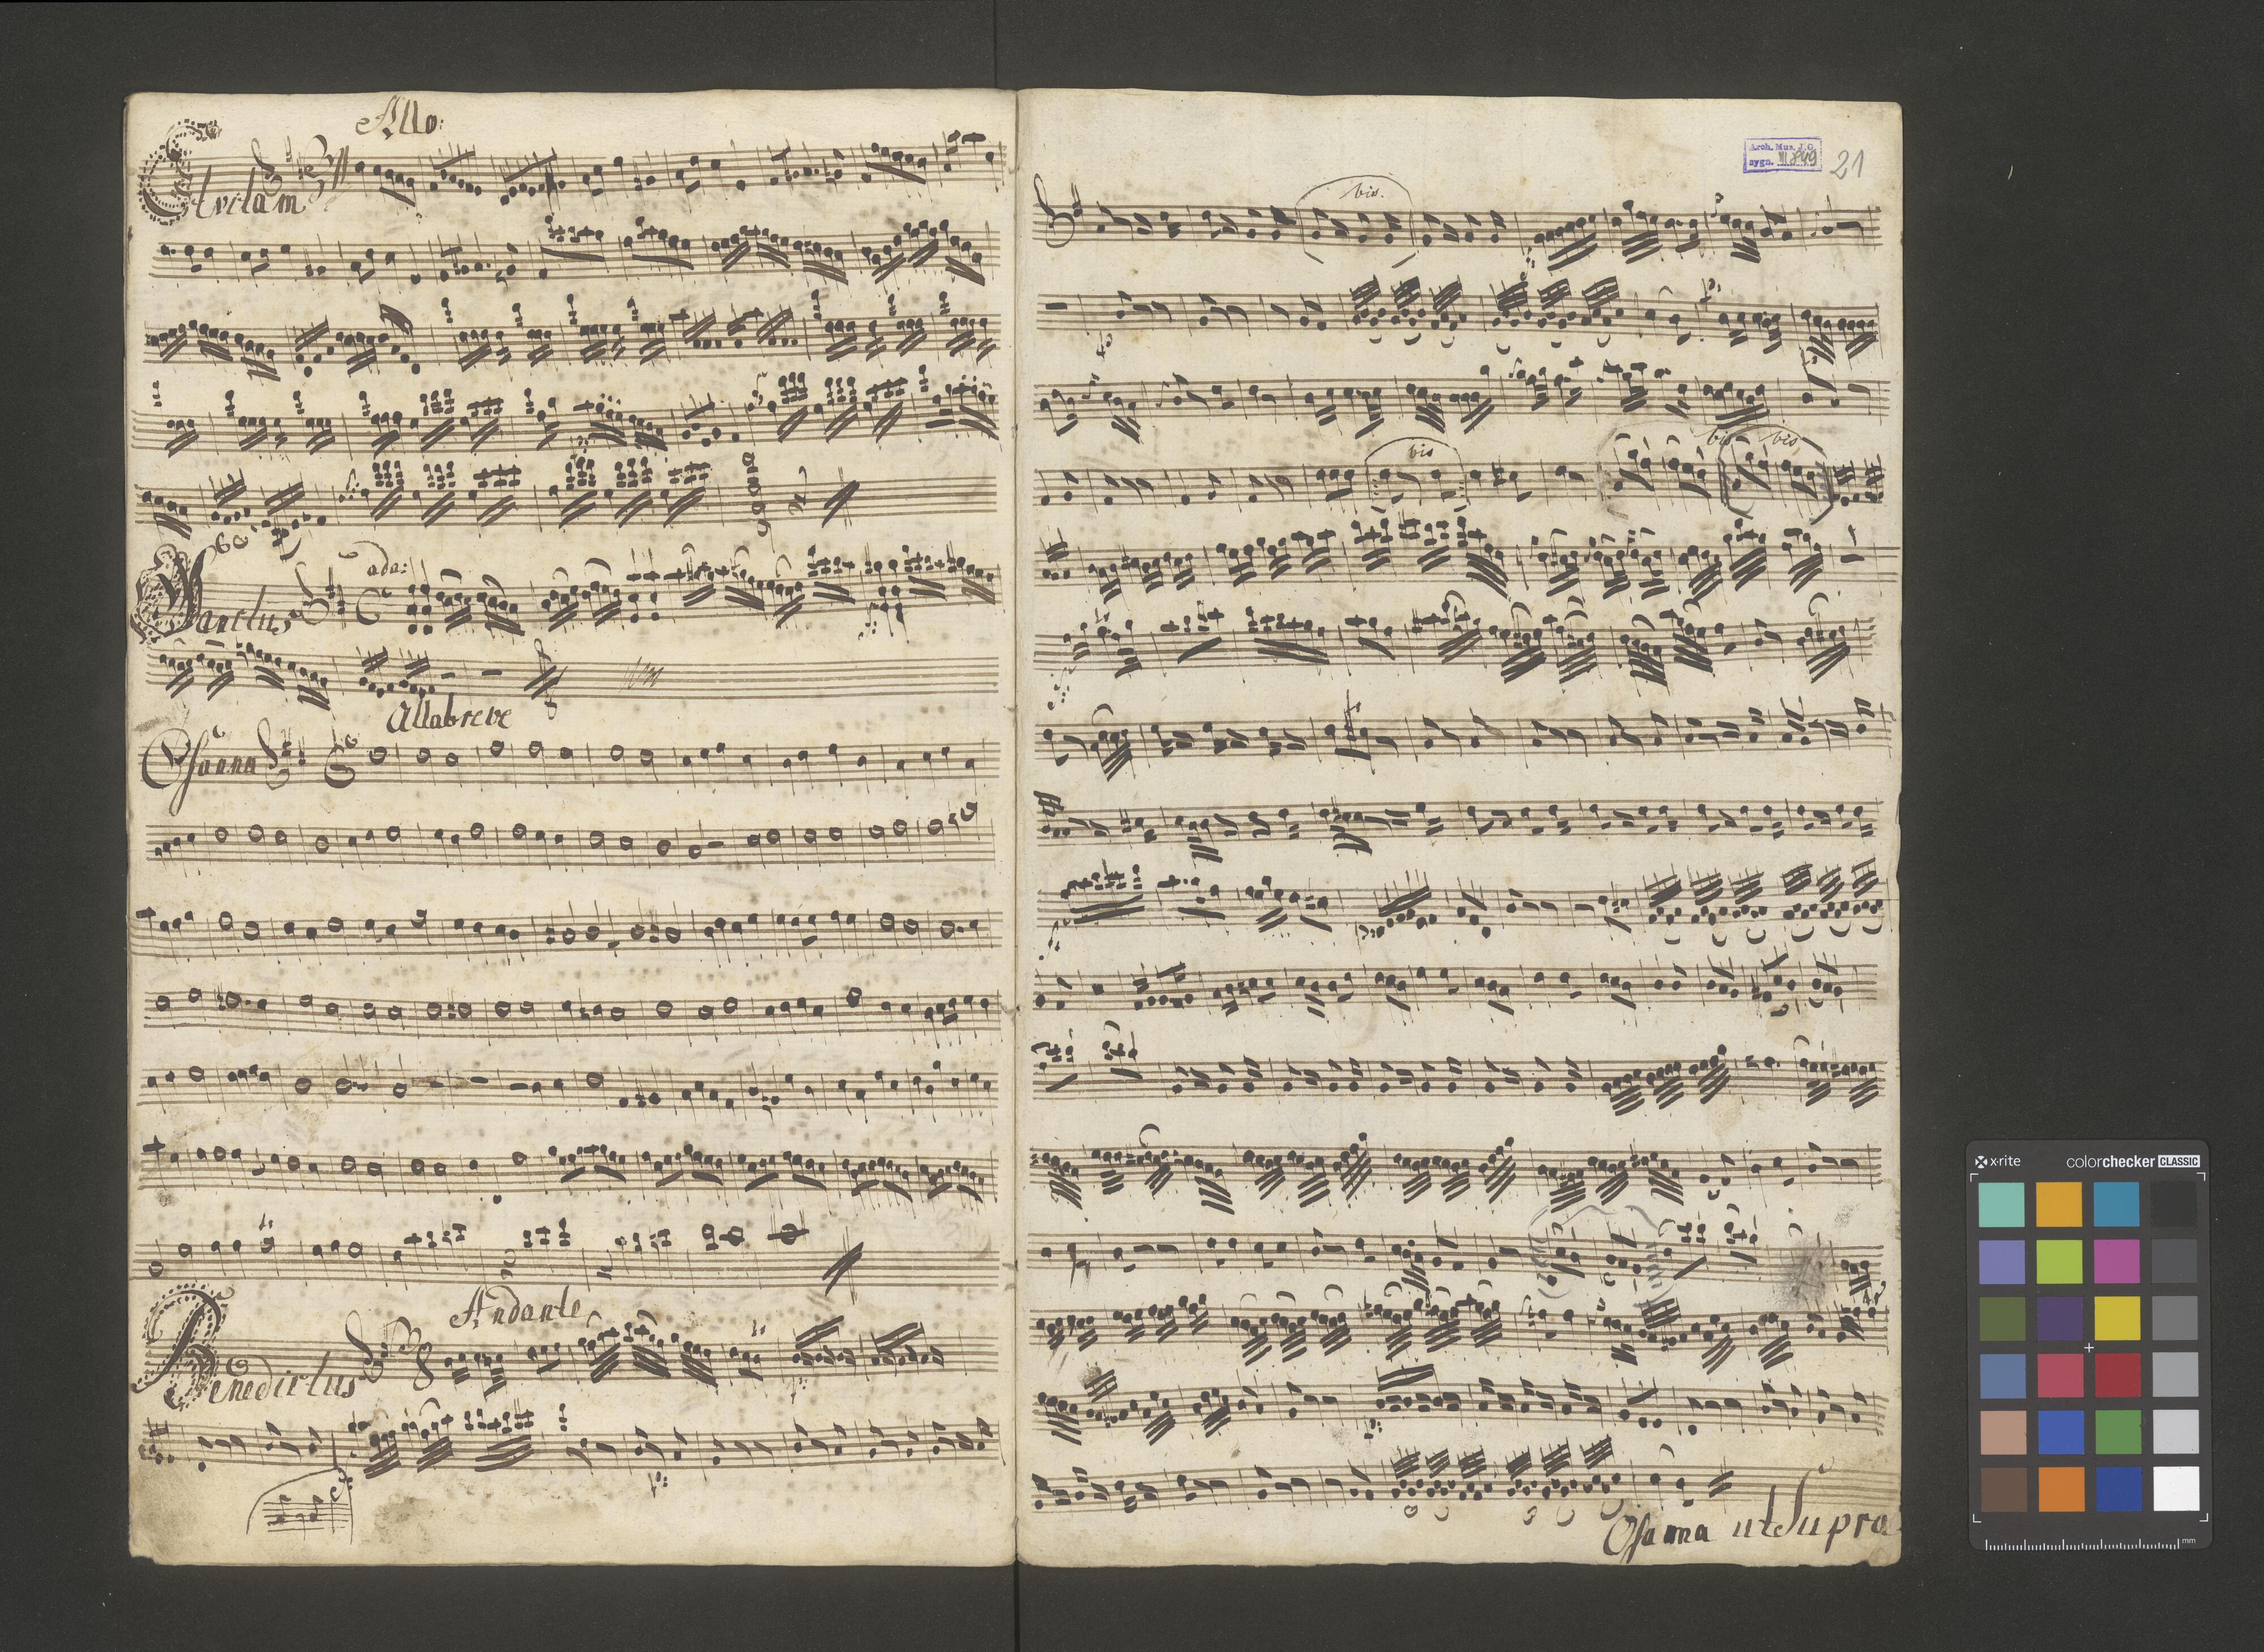 Allo:
Et vitam
ada:
Sanctus
Allabreve
Osanna
Andante
Benedictus
Arch. Mus. J.G.
sygn. III 849
21
bis.
bis
bis
bis
Osanna ut Supra
x-rite
colorchecker CLASSIC
mm